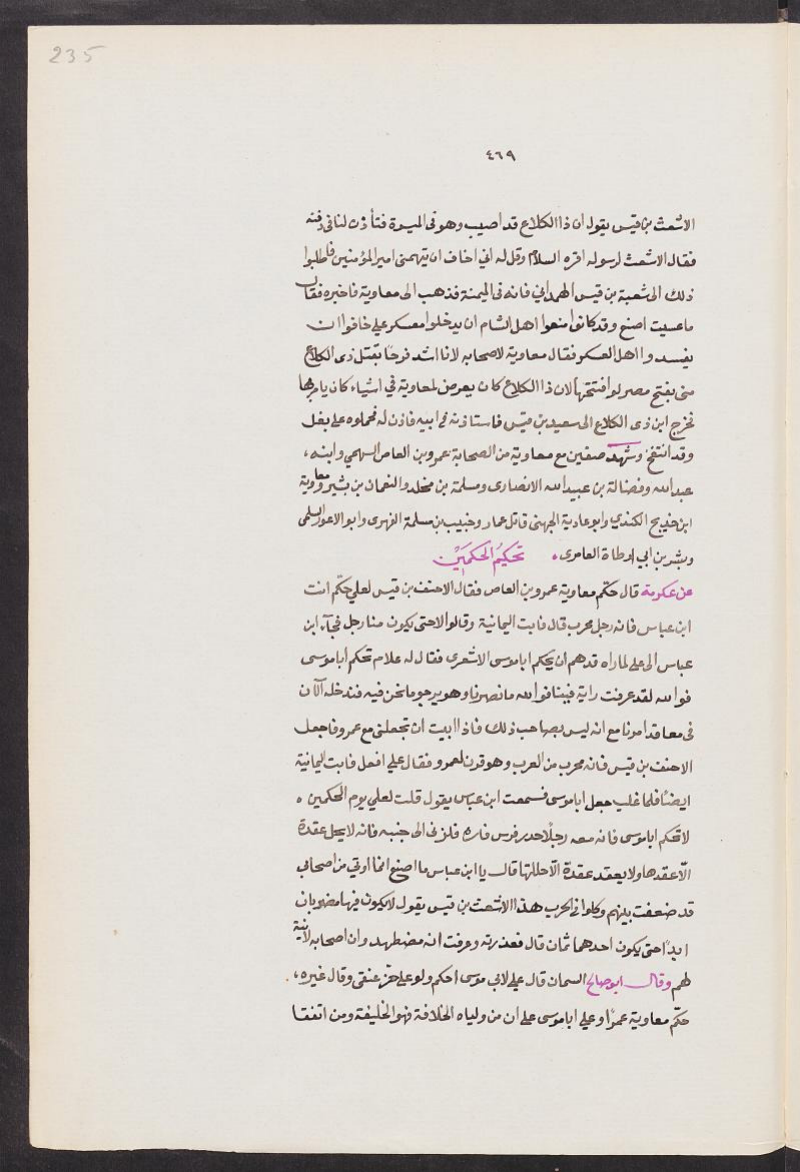 235
٤٦٩
الاشعث بن قيس يقول ان ذا الكلاع قد اصيب وهو فى الميسرة فتأذن لنا فى دفنه
فقال الاشعث لرسوله اقره السلام وقل له انى اخاف ان يتهمنى امير المؤمنين فاطلبوا
ذلك الى شعبة بن قيس الهمدانى فانه فى الميمنة فذهب الى معاوية فاخبره فقال
ما عسيت اصنع وقد كانوا منعوا اهل الشام ان يدخلوا معسكر علي خافوا ان
يفسدوا اهل العسكر فقال معاوية لاصحابه لانا اشد فرحًا بقتل ذى الكلاع
منى بفتح مصر لو افتتحتها لان ذا الكلاع كان يعرض لمعاوية في اشياء كان يامر بها
فخرج ابن ذى الكلاع الى سعيد بن قيس فاستاذنه فى ابيه فاذن له فحملوه على بغل
وقد انتفخ وشهد صفين مع معاوية من الصحابة عمرو بن العاص السهمي وابنه،
عبد الله وفضالة بن عبيد الله الانصارى ومسلمة بن مخلد والنعمان بن بشير ومعاوية
ابن خديج الكندي وابو عادية الجهنى قاتل عمار وحبيب بن مسلمة الفهرى وابو الاعور السلمى
وبشر بن ابي ارطاة العامرى. تحكيم الحكمين
عن عكرمة قال حكّم معاوية عمرو بن العاص فقال الاحنف بن قيس لعلي حكّم انت
ابن عباس فانه رجل مجرب قال فابت اليمانية وقالوا لا حتى يكون منا رجل فجآء ابن
عباس الى على لما راه قد هم ان يحكم ابا موسى الاشعرى فقال له علام تحكم ابا موسى
فوالله لقد عرفت راية فينا فوالله ما نصرنا وهو يرجو ما نحن فيه فندخله الآن
فى معاقد امرنا مع انه ليس بصاحب ذلك فاذا ابيت ان تجعلنى مع عمرو فاجعل
الاحنف بن قيس فانه مجرب من العرب وهو قرن لعمرو فقال علي افعل فابت اليمانية
ايضًا فلما غلب جعل ابا موسى فسمعت ابن عباس يقول قلت لعلي يوم الحكمين .
لا تحكم ابا موسى فانه معه رجلًا حدر فرس فاره فلزنى الى جنبه فانه لا يحل عقدة
الّا عقدها ولا يعقد عقدة الّا حللتها قال يا ابن عباس ما اصنع انما اوتي من اصحابي
قد ضعفت بينهم وكلوا فى الحرب هذا الاشعث بن قيس يقول لا يكون فيها مضريان
ابدًا حتى يكون احدهما ثمان قال فعذرته وعرفت انه مضطهد وان اصحابه لا نية
لهم وقال ابو صالح السمان قال علي لابى موسى احكم ولو على حز عنقى وقال غيره،
حكّم معاوية عمرًا وعلي ابا موسى على ان من ولياه الخلافة فهو الخليفة ومن اتفقا